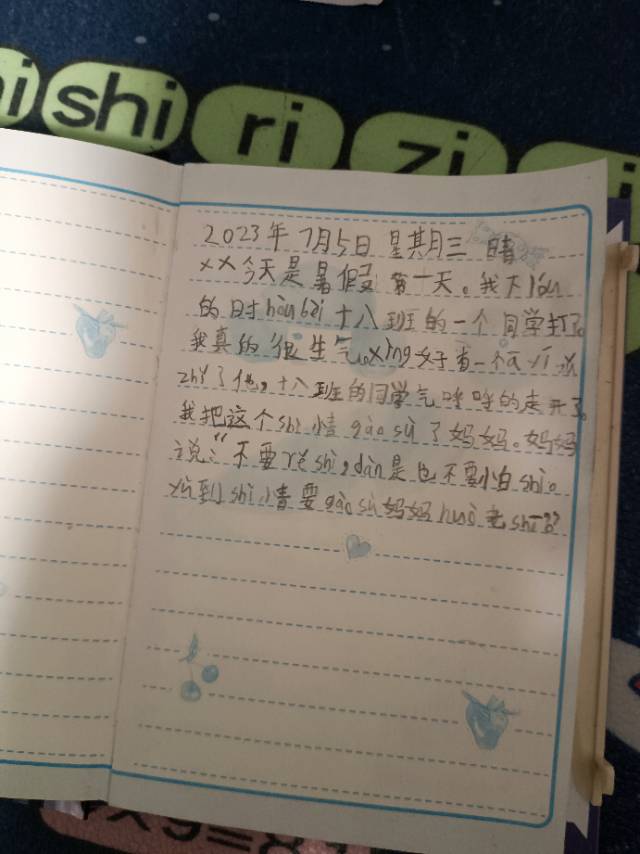 shi
ri
zi
2023年7月5日 星其月三 晴
××今天是暑假第一天。我下lóu
的时hòu bèi十八班的一个同学打了。
我真的很生气。xìng好有一个
zhǐ了他。十八班的同学气呼呼的走开了。
我把这个shì情gào sù了妈妈。妈妈
说:“不要rě shì,dàn是也不要怕shì。
yù到shì情要gào sù妈妈huò老shī。”